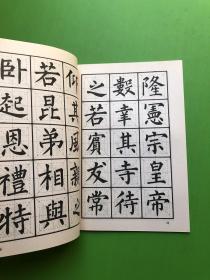 仰其風親之
若昆弟相與
卧起恩禮特
隆憲宗皇帝
數幸其寺待
之若賓友常